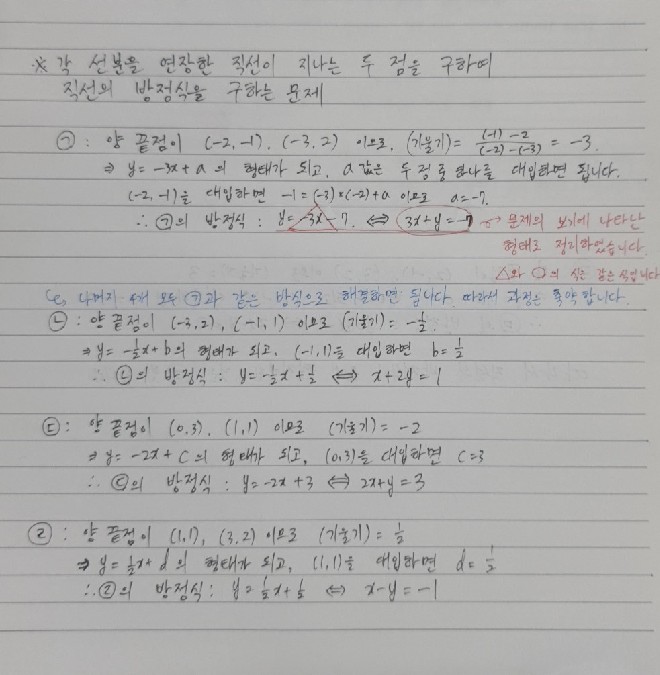 ※ 각 선분을 연장한 직선이 지나는 두 점을 구하여
직선의 방정식을 구하는 문제
㉠ : 양 끝점이 (-2, -1), (-3, 2) 이므로, (기울기) = \frac{(-1) - 2}{(-2) - (-3)} = -3.
⇒ y = -3x + a 의 형태가 되고, a값은 두 점 중 하나를 대입하면 됩니다.
(-2, -1)을 대입하면 -1 = (-3)×(-2) + a 이므로 a = -7.
∴ ㉠의 방정식 : y = -3x - 7. ⇔ 3x + y = -7 → 문제의 보기에 나타난
형태로 정리하였습니다.
△와 ○의 식는 같은 식입니다
↳ 나머지 4개 모두 ㉠과 같은 방식으로 해결하면 됩니다. 따라서 과정은 축약합니다.
㉡ : 양 끝점이 (-3, 2), (-1, 1) 이므로 (기울기) = -\frac{1}{2}
⇒ y = -\frac{1}{2}x + b의 형태가 되고, (-1, 1)을 대입하면 b = \frac{1}{2}
∴ ㉡의 방정식 : y = -\frac{1}{2}x + \frac{1}{2} ⇔ x + 2y = 1
㉢ : 양 끝점이 (0, 3), (1, 1) 이므로 (기울기) = -2
⇒ y = -2x + c 의 형태가 되고, (0, 3)을 대입하면 c = 3
∴ ㉢의 방정식 : y = -2x + 3 ⇔ 2x + y = 3
㉣ : 양 끝점이 (1, 1), (3, 2) 이므로 (기울기) = \frac{1}{2}
⇒ y = \frac{1}{2}x + d 의 형태가 되고, (1, 1)을 대입하면 d = \frac{1}{2}
∴ ㉣의 방정식 : y = \frac{1}{2}x + \frac{1}{2} ⇔ x - y = -1